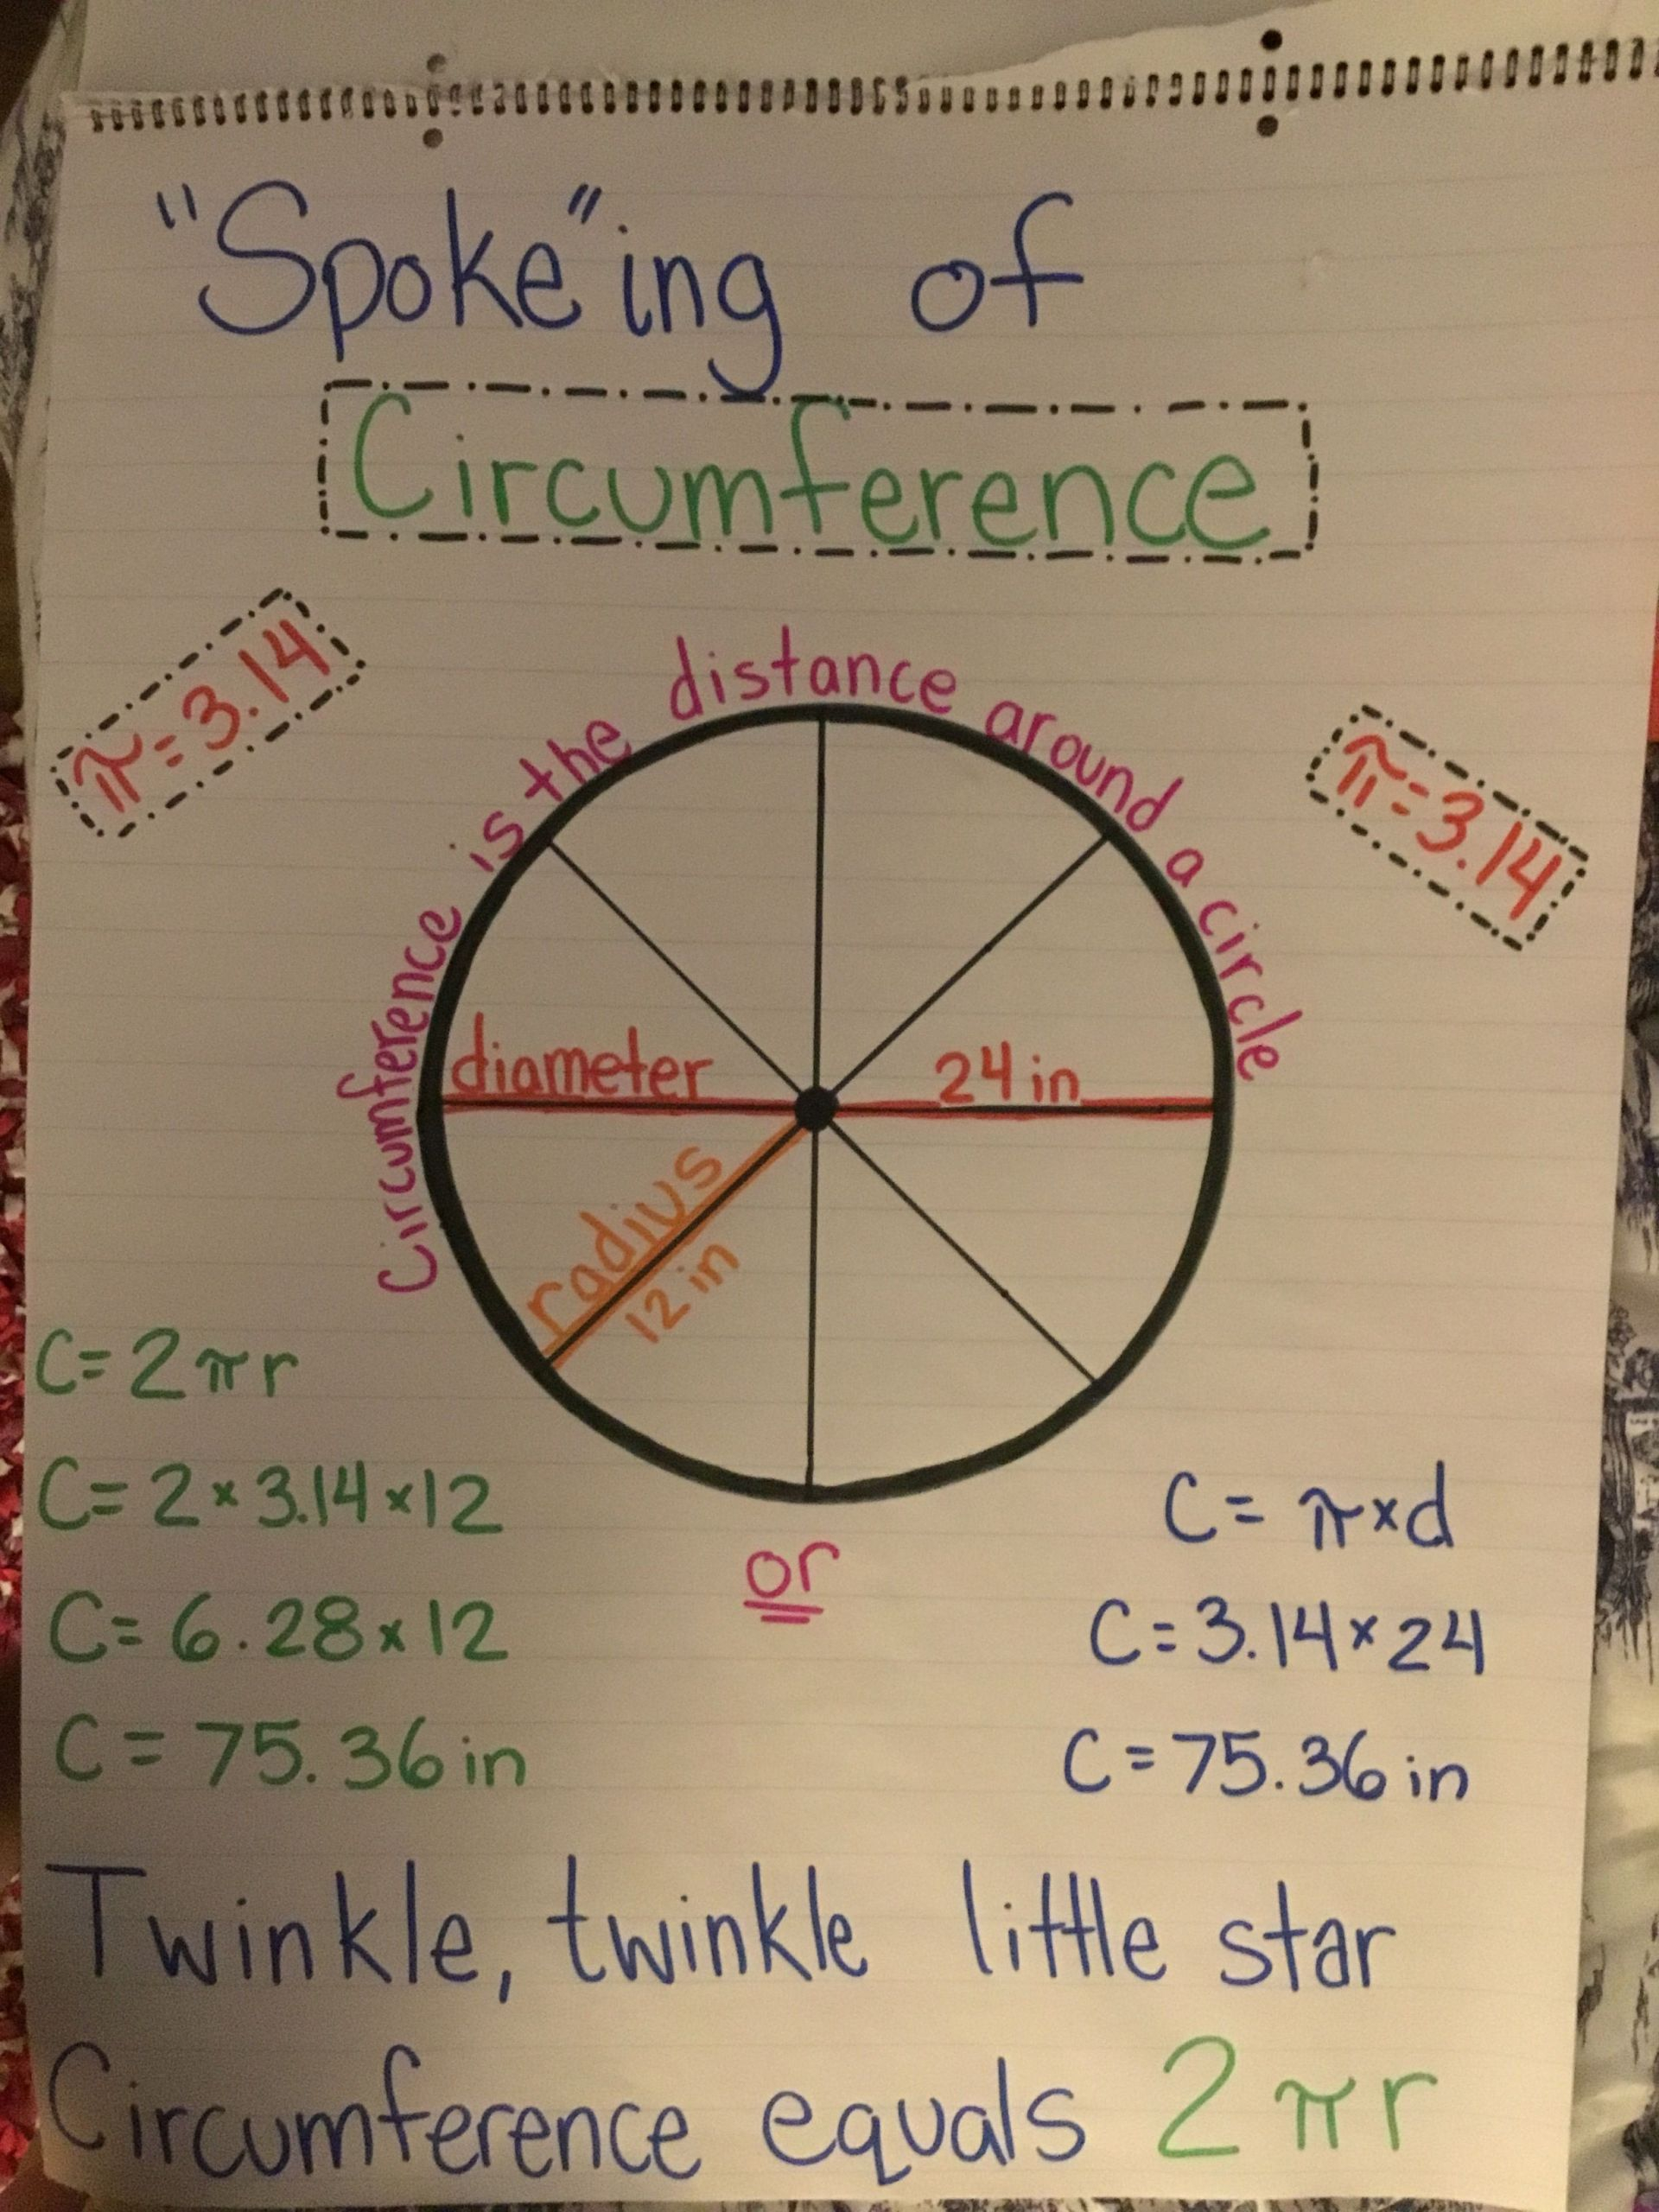 "Spoke"ing of
Circumference
π=3.14
π=3.14
Circumference is the distance around a circle
diameter 24 in
radius
12 in
C=2πr
C=2×3.14×12
C=6.28×12
C=75.36in
or
C=π×d
C=3.14×24
C=75.36in
Twinkle, twinkle little star
Circumference equals 2πr